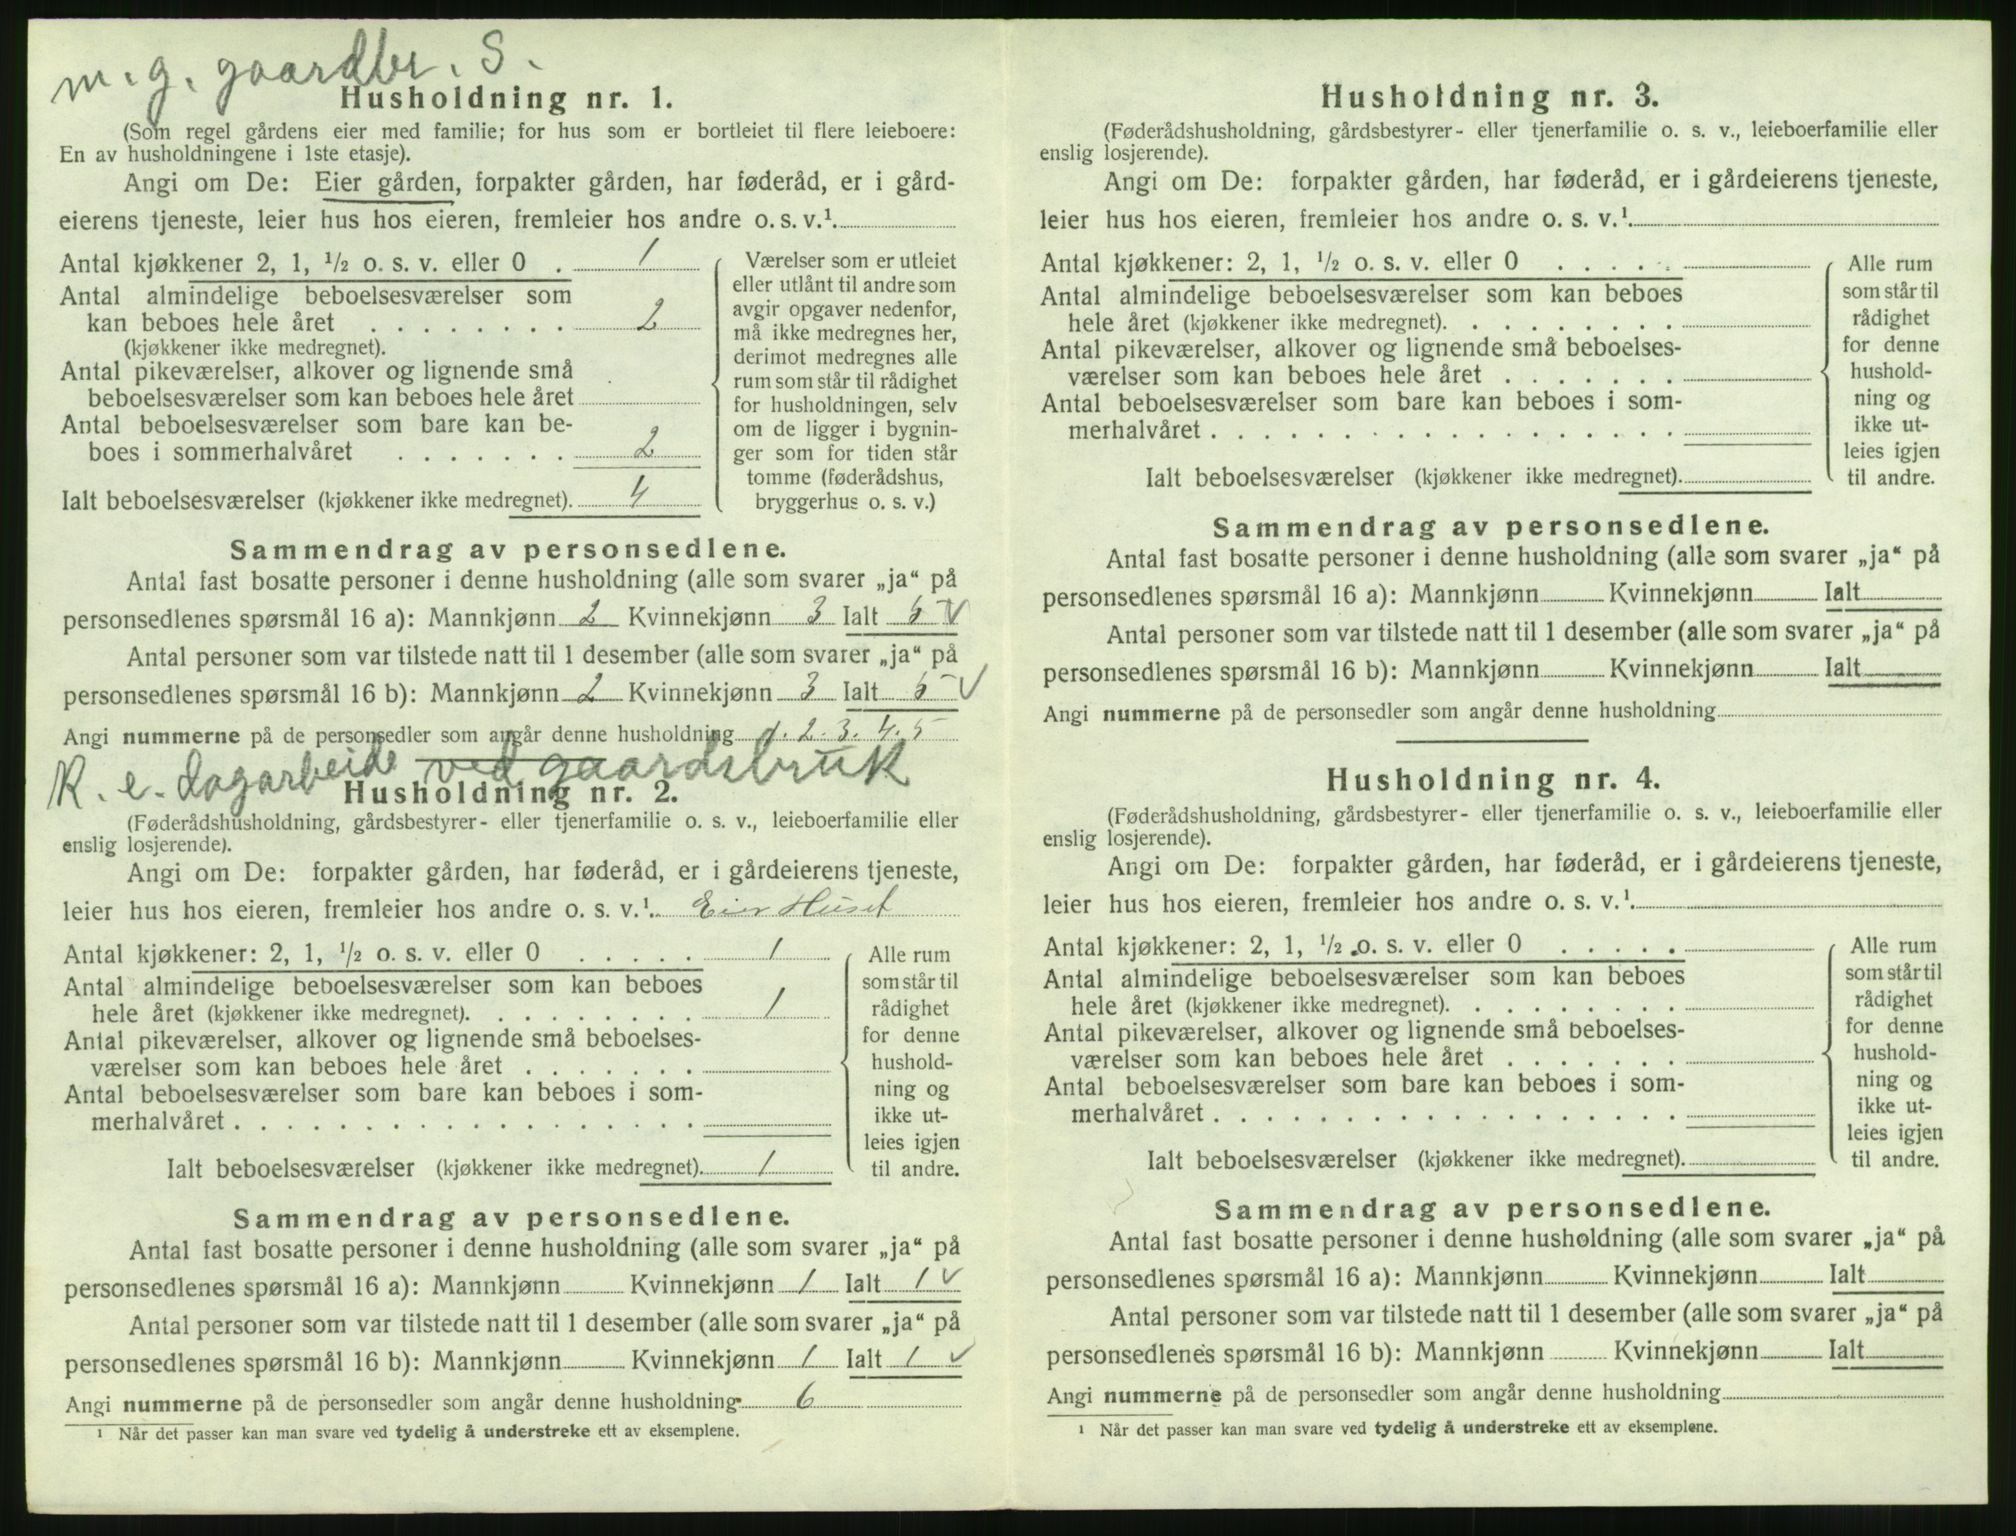 m. g. gaardbr. S.
Husholdning nr. 1.
(Som regel gårdens eier med familie; for hus som er bortleiet til flere leieboere:
En av husholdningene i 1ste etasje).
Angi om De: Eier gården, forpakter gården, har føderåd, er i gård-
eierens tjeneste, leier hus hos eieren, fremleier hos andre o. s. v.¹.
Antal kjøkkener 2, 1, ½ o. s. v. eller 0 . 1
Antal almindelige beboelsesværelser som
kan beboes hele året . . . . . . . . 2
(kjøkkener ikke medregnet).
Antal pikeværelser, alkover og lignende små
beboelsesværelser som kan beboes hele året
Antal beboelsesværelser som bare kan be-
boes i sommerhalvåret . . . . . . . 2
Ialt beboelsesværelser (kjøkkener ikke medregnet). 4
Værelser som er utleiet
eller utlånt til andre som
avgir opgaver nedenfor,
må ikke medregnes her,
derimot medregnes alle
rum som står til rådighet
for husholdningen, selv
om de ligger i bygnin-
ger som for tiden står
tomme (føderådshus,
bryggerhus o. s. v.)
Sammendrag av personsedlene.
Antal fast bosatte personer i denne husholdning (alle som svarer „ja“ på
personsedlenes spørsmål 16 a): Mannkjønn 2 Kvinnekjønn 3 Ialt 5 ✓
Antal personer som var tilstede natt til 1 desember (alle som svarer „ja“ på
personsedlenes spørsmål 16 b): Mannkjønn 2 Kvinnekjønn 3 Ialt 5 ✓
Angi nummerne på de personsedler som angår denne husholdning 1. 2. 3. 4. 5
K. e. dagarbeide ved gaardsbruk
Husholdning nr. 2.
(Føderådshusholdning, gårdsbestyrer- eller tjenerfamilie o. s. v., leieboerfamilie eller
enslig losjerende).
Angi om De: forpakter gården, har føderåd, er i gårdeierens tjeneste,
leier hus hos eieren, fremleier hos andre o. s. v.¹. Eier Huset
Antal kjøkkener: 2, 1, ½ o. s. v. eller 0 . . . . . 1
Antal almindelige beboelsesværelser som kan beboes
hele året (kjøkkener ikke medregnet). . . . . . . . . 1
Antal pikeværelser, alkover og lignende små beboelses-
værelser som kan beboes hele året . . . . . . .
Antal beboelsesværelser som bare kan beboes i som-
merhalvåret . . . . . . . . . . . . . . . . . .
Ialt beboelsesværelser (kjøkkener ikke medregnet). 1
Alle rum
som står til
rådighet
for denne
hushold-
ning og
ikke ut-
leies igjen
til andre.
Sammendrag av personsedlene.
Antal fast bosatte personer i denne husholdning (alle som svarer „ja“ på
personsedlenes spørsmål 16 a): Mannkjønn Kvinnekjønn 1 Ialt 1 ✓
Antal personer som var tilstede natt til 1 desember (alle som svarer „ja“ på
personsedlenes spørsmål 16 b): Mannkjønn Kvinnekjønn 1 Ialt 1 ✓
Angi nummerne på de personsedler som angår denne husholdning 6
¹ Når det passer kan man svare ved tydelig å understreke ett av eksemplene.
Husholdning nr. 3.
(Føderådshusholdning, gårdsbestyrer- eller tjenerfamilie o. s. v., leieboerfamilie eller
enslig losjerende).
Angi om De: forpakter gården, har føderåd, er i gårdeierens tjeneste,
leier hus hos eieren, fremleier hos andre o. s. v.¹.
Antal kjøkkener: 2, 1, ½ o. s. v. eller 0 . . . . .
Antal almindelige beboelsesværelser som kan beboes
hele året (kjøkkener ikke medregnet). . . . . . . . .
Antal pikeværelser, alkover og lignende små beboelses-
værelser som kan beboes hele året . . . . . . .
Antal beboelsesværelser som bare kan beboes i som-
merhalvåret . . . . . . . . . . . . . . . . . .
Ialt beboelsesværelser (kjøkkener ikke medregnet).
Alle rum
som står til
rådighet
for denne
hushold-
ning og
ikke ut-
leies igjen
til andre.
Sammendrag av personsedlene.
Antal fast bosatte personer i denne husholdning (alle som svarer „ja“ på
personsedlenes spørsmål 16 a): Mannkjønn Kvinnekjønn Ialt
Antal personer som var tilstede natt til 1 desember (alle som svarer „ja“ på
personsedlenes spørsmål 16 b): Mannkjønn Kvinnekjønn Ialt
Angi nummerne på de personsedler som angår denne husholdning
Husholdning nr. 4.
(Føderådshusholdning, gårdsbestyrer- eller tjenerfamilie o. s. v., leieboerfamilie eller
enslig losjerende).
Angi om De: forpakter gården, har føderåd, er i gårdeierens tjeneste,
leier hus hos eieren, fremleier hos andre o. s. v.¹.
Antal kjøkkener: 2, 1, ½ o. s. v. eller 0 . . . . .
Antal almindelige beboelsesværelser som kan beboes
hele året (kjøkkener ikke medregnet). . . . . . . . .
Antal pikeværelser, alkover og lignende små beboelses-
værelser som kan beboes hele året . . . . . . .
Antal beboelsesværelser som bare kan beboes i som-
merhalvåret . . . . . . . . . . . . . . . . . .
Ialt beboelsesværelser (kjøkkener ikke medregnet).
Alle rum
som står til
rådighet
for denne
hushold-
ning og
ikke ut-
leies igjen
til andre.
Sammendrag av personsedlene.
Antal fast bosatte personer i denne husholdning (alle som svarer „ja“ på
personsedlenes spørsmål 16 a): Mannkjønn Kvinnekjønn Ialt
Antal personer som var tilstede natt til 1 desember (alle som svarer „ja“ på
personsedlenes spørsmål 16 b): Mannkjønn Kvinnekjønn Ialt
Angi nummerne på de personsedler som angår denne husholdning
¹ Når det passer kan man svare ved tydelig å understreke ett av eksemplene.